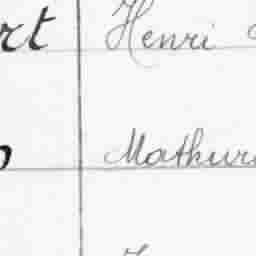 rt Henri
Mathur